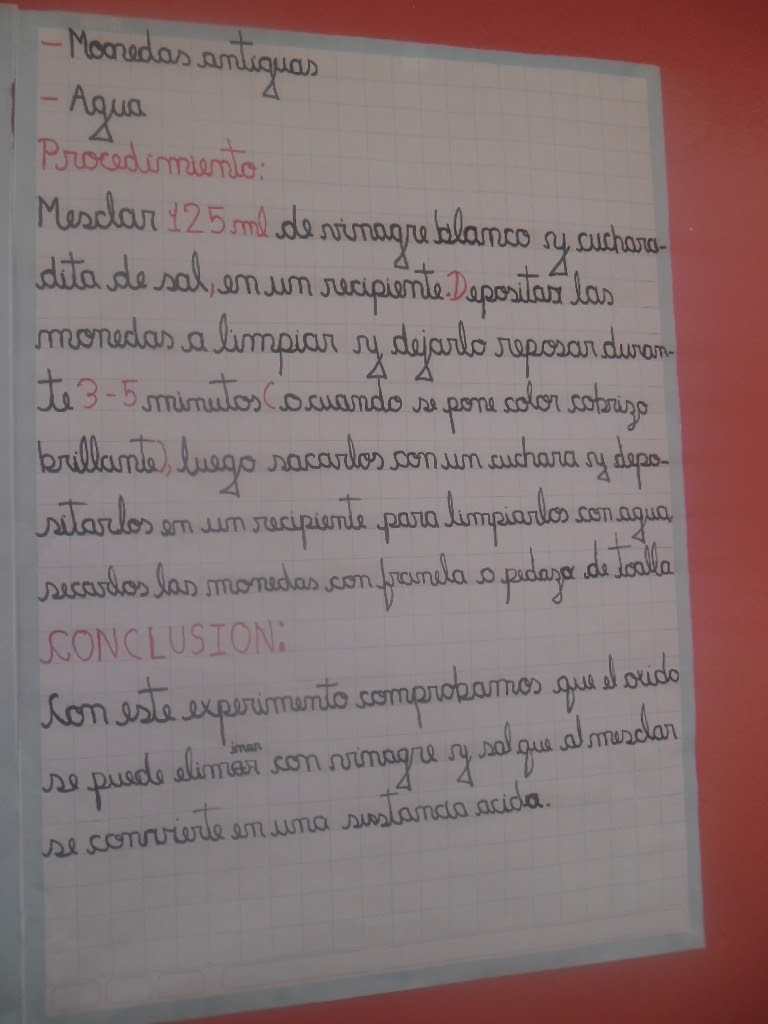 - Monedas antiguas
- Agua
Procedimiento:
Mesclar 125 ml de vinagre blanco y cuchara-
dita de sal, en un recipiente. Depositar las
monedas a limpiar y dejarlo reposar duran-
te 3-5 minutos (o cuando se pone color cobrizo
brillante), luego sacarlos con un cuchara y depo-
sitarlos en un recipiente para limpiarlos con agua,
secarlos las monedas con franela o pedazo de toalla
CONCLUSION:
Con este experimento comprobamos que el oxido
se puede eliminar con vinagre y sal que al mesclar
se convierte en una sustancia acida.